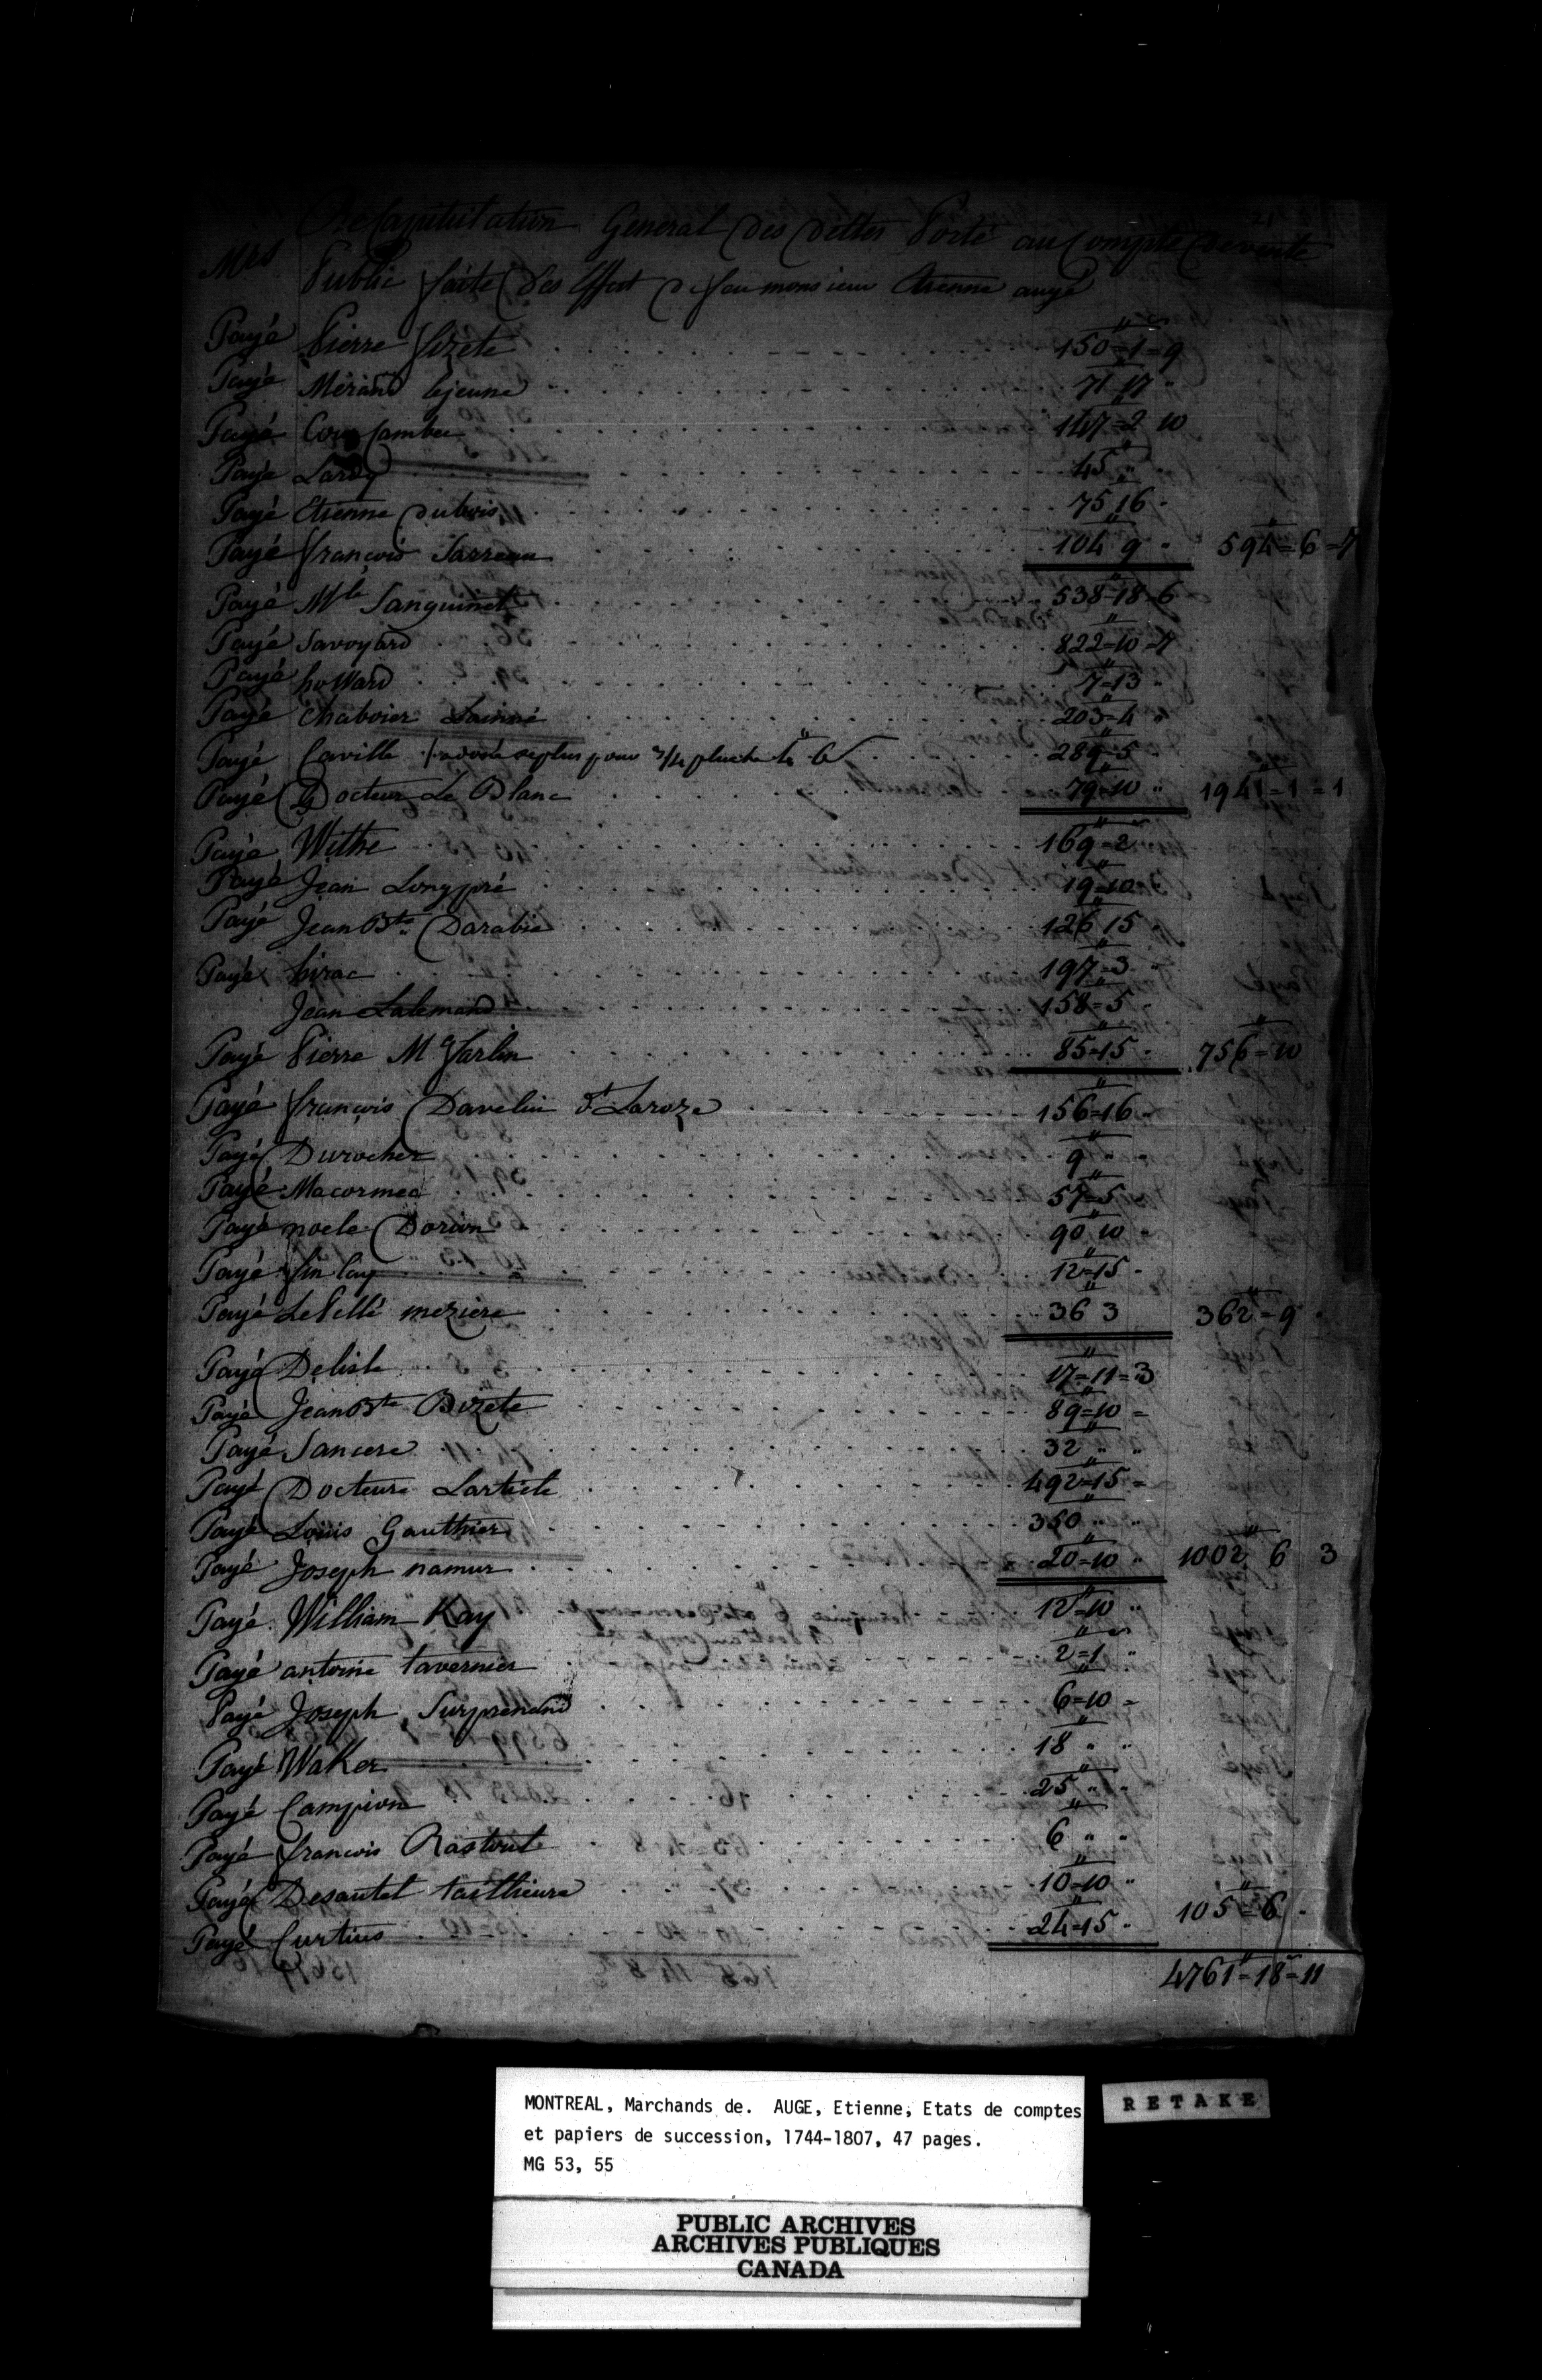 21
Recapitulation General des dettes Porté au Compte de vente
Mrs Public faite des Effect de feu monsieur Etienne augé
Payé Pierre fizete 150=1=9
Payé Mérand lejeune 71=17 "
Payé 147=2 10
Payé Lardy 45 " "
Payé Etienne dubois 75 16 "
Payé françois Sarreau 104 9 " 594=6=7
Payé Mle Sanguinet 538=18=6
Payé Savoyard 822=10=7
Payé howard 7=13 "
Payé Chaboiez Lainné 203=4 "
Payé Caville 289=5 "
Payé Docteur Le Blanc 79=10 " 1941=1=1
Payé Withe 169=2 "
Payé Jean Longpré 19=10 "
Payé Jean Bte Darabie 126 15 "
Payé hirac 197=3 "
Jean Lalemand 158=5 "
Payé Pierre Mc farlin 85=15 " 756=10
Payé françois Davelui dt Laroze 156=16 "
Payé Durocher 9 " "
Payé Macormec 57=5 "
Payé noele Dorion 90 10 "
Payé finlay 12=15 "
Payé Le Pellé meziere 36 3 362=9 "
Payé Delisle 17=11=3
Payé Jean Bte Bizete 89=10 =
Payé Sancere 32 " "
Payé Docteure Lartiele 492=15 =
Payé Louis Gauthier 350 " "
Payé Joseph namur 20=10 " 1002 6 3
Payé William Kay 12=10 "
Payé antoine tavernier 2=1 "
Payé Joseph Surprenend 6=10 =
Payé Walker 18 " "
Payé Campion 25 " "
Payé francois Rastout 6 " "
Payé Desautel taillieure 10=10 "
Payé Curtius 24=15 " 105=6 "
4761=18=11
MONTREAL, Marchands de. AUGE, Etienne, Etats de comptes
et papiers de succession, 1744-1807, 47 pages.
MG 53, 55
RETAKE
PUBLIC ARCHIVES
ARCHIVES PUBLIQUES
CANADA